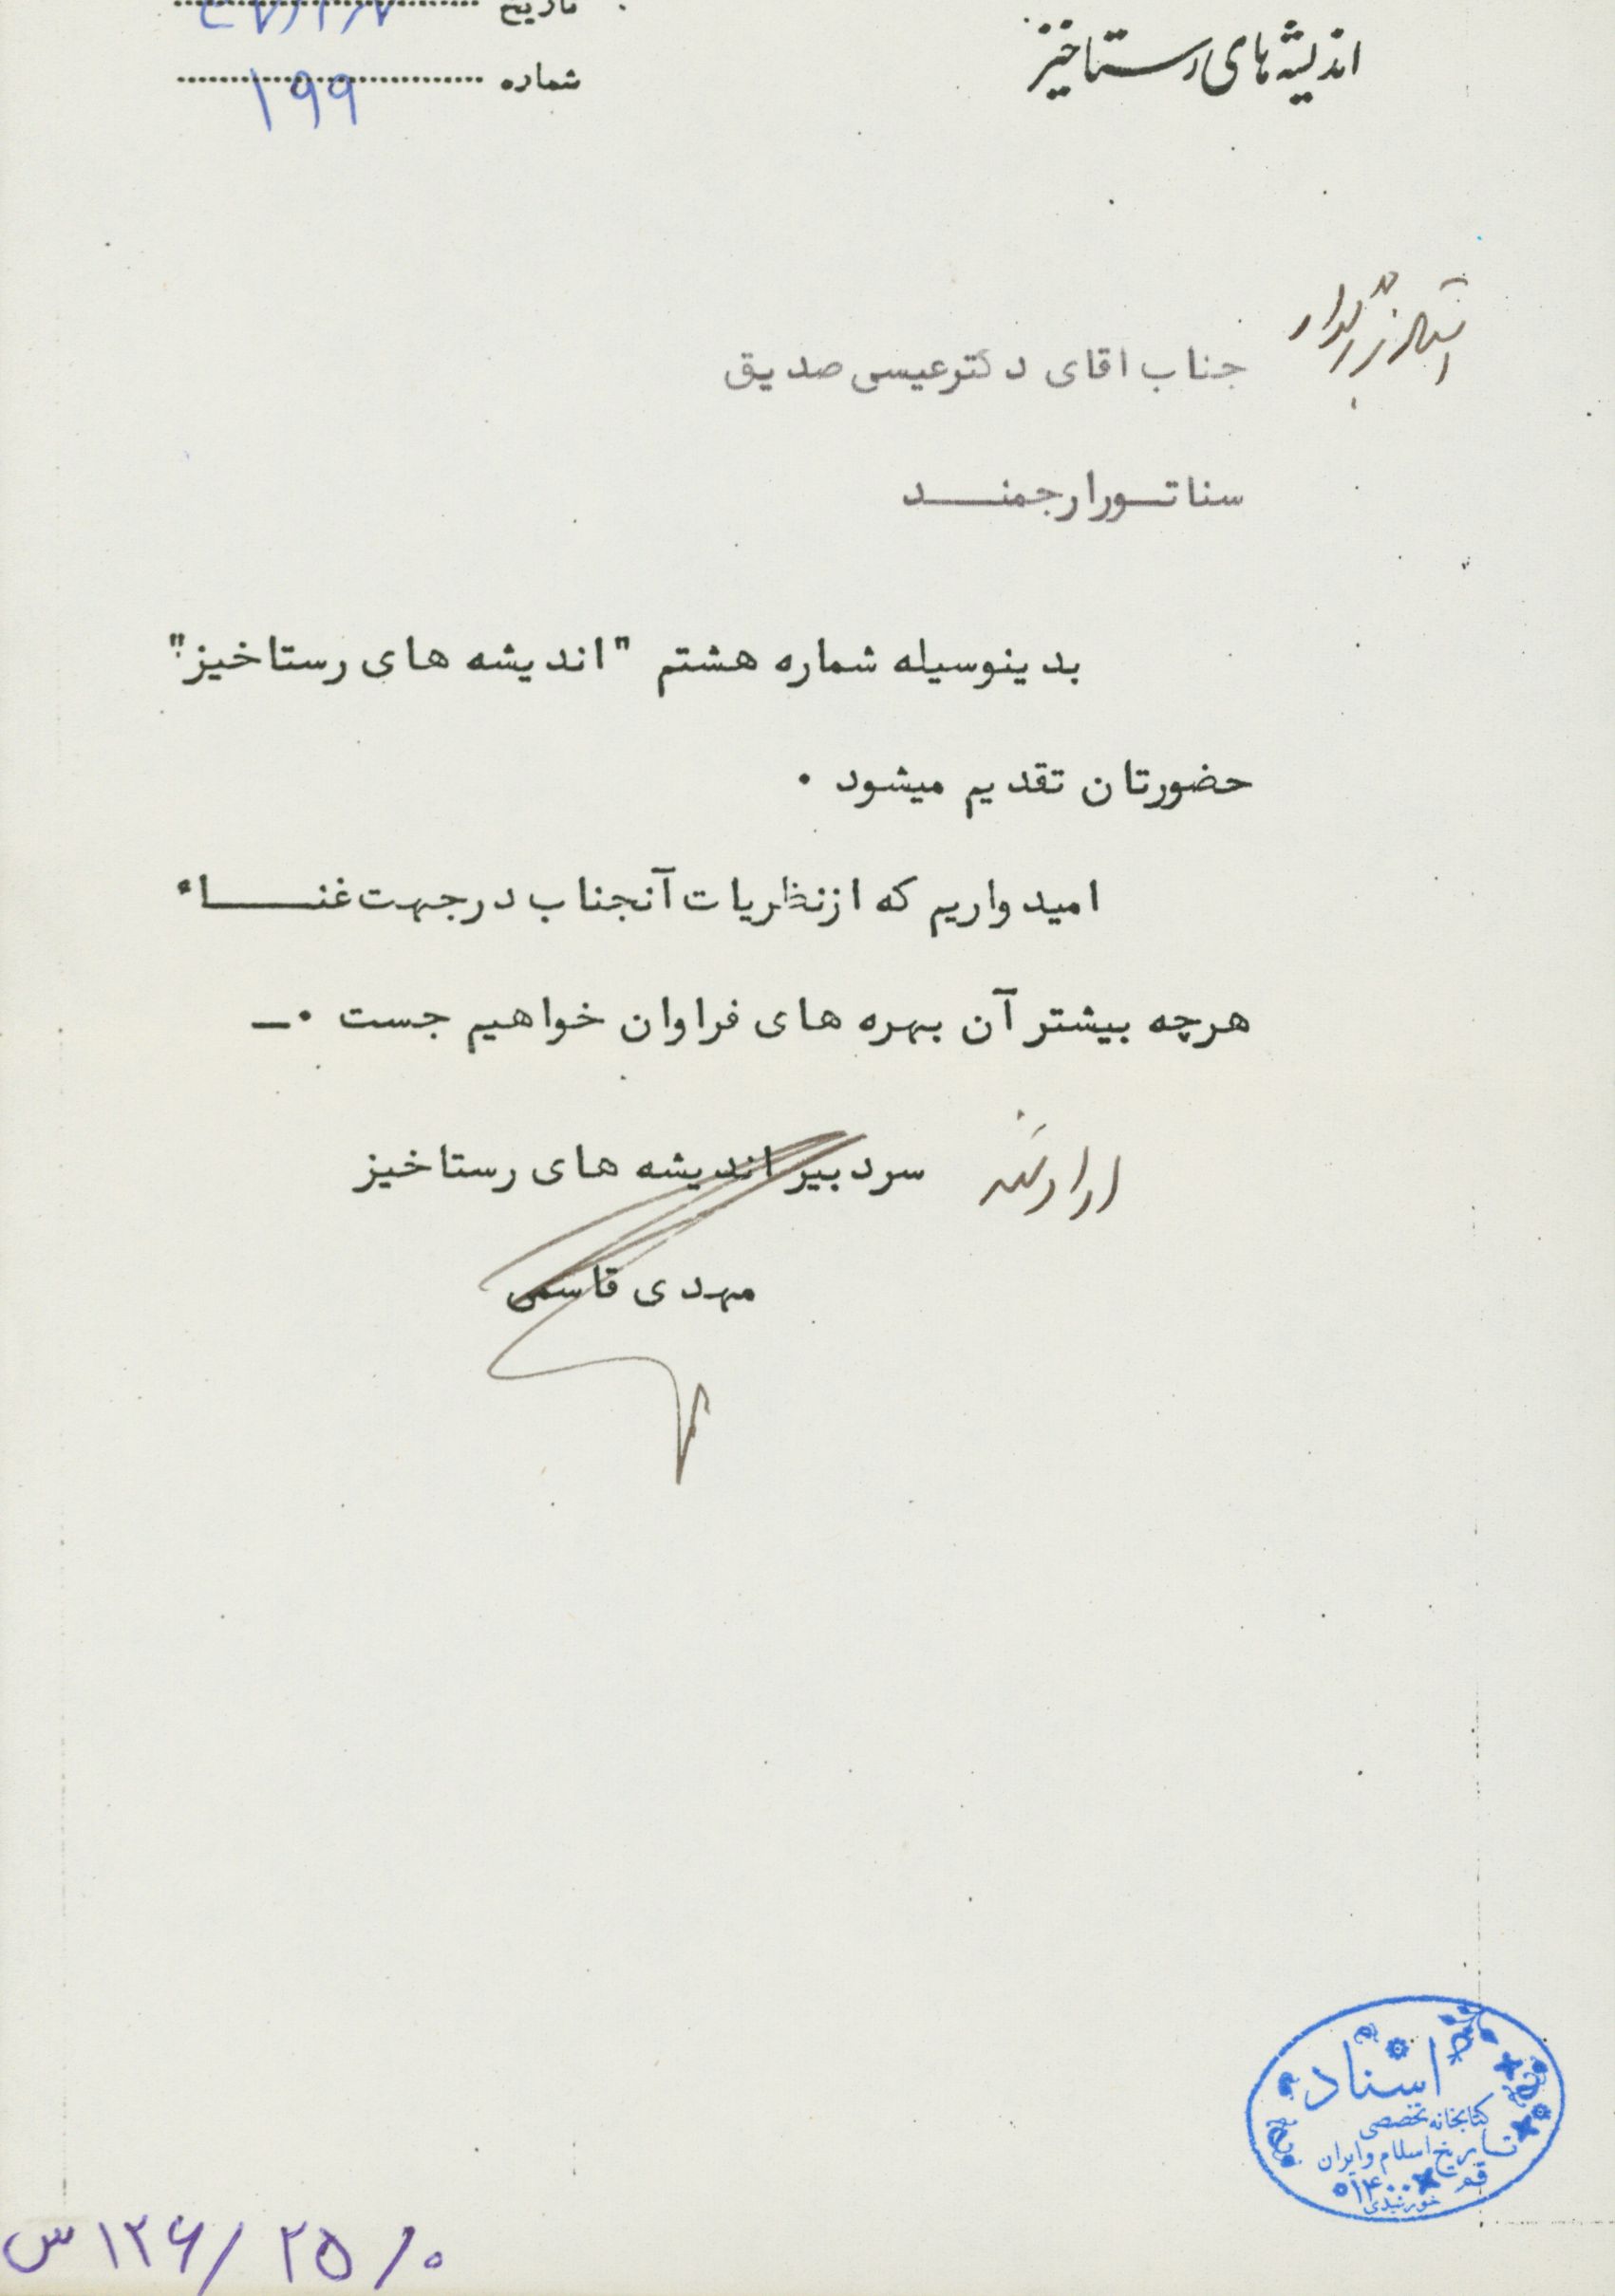 اندیشه‌های رستاخیز
تاریخ
شماره ۱۹۹
جناب اقای دکترعیسی صدیق
سناتورارجمنـــد
بدینوسیله شماره هشتم "اندیشه های رستاخیز"
حضورتان تقدیم میشود ۰
امیدواریم که ازنظریات آنجناب درجهت غنـــاء
هرچه بیشترآن بهره های فراوان خواهیم جست ۰ـ
سردبیراندیشه های رستاخیز
مهدی قاسمی
اسناد
کتابخانه تخصصی
تاریخ اسلام و ایران
قم
۱۴۰۰
خورشیدی
۱۲۶/۲۵/۰ س